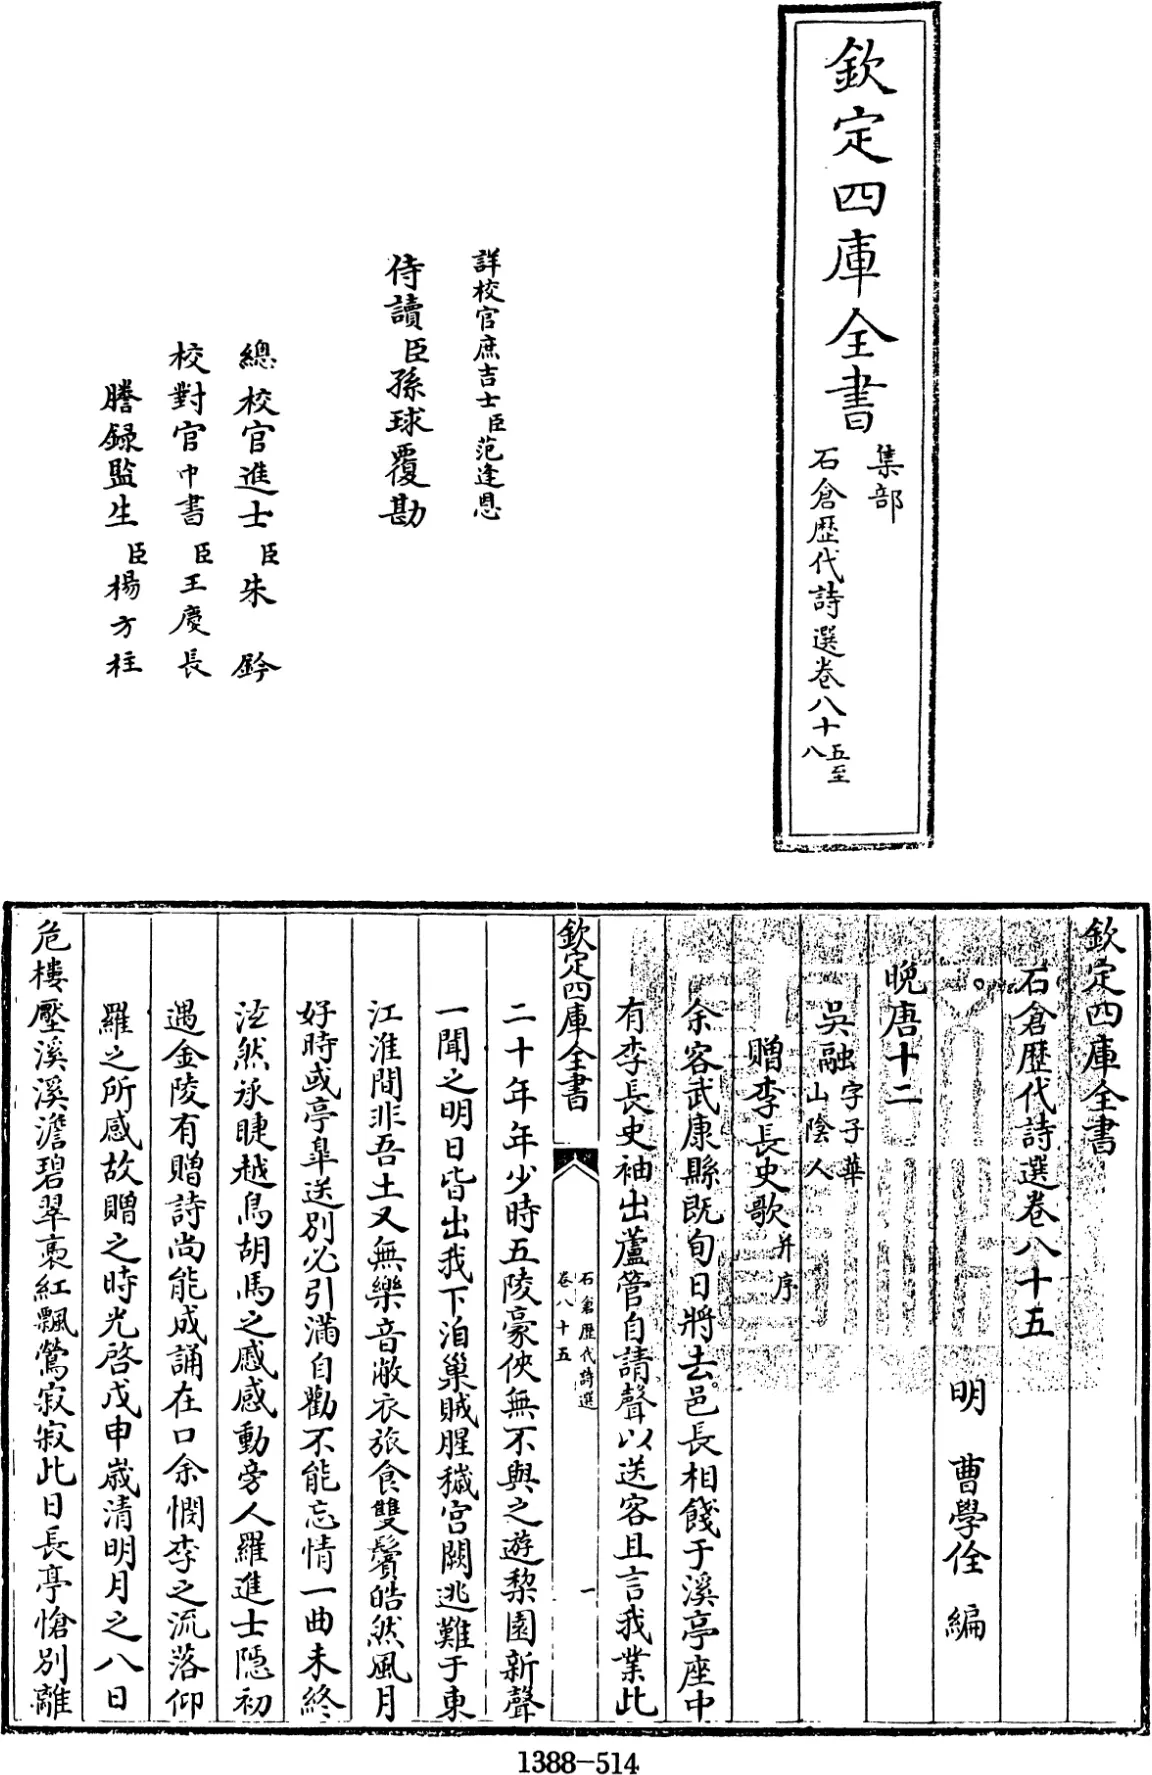 欽定四庫全書
集部
石倉歷代詩選卷八十五至
八
詳校官庶吉士臣范逢恩
侍讀臣孫球覆勘
總校官進士臣朱鈐
校對官中書臣王慶長
謄錄監生臣楊方柱
欽定四庫全書
石倉歷代詩選卷八十五
明 曹學佺 編
晚唐十二
吳融字子華
山陰人
贈李長史歌并序
余客武康縣既旬日將去邑長相餞于溪亭座中
有李長史袖出蘆管自請聲以送客且言我業此
欽定四庫全書
石倉歷代詩選
卷八十五
一
二十年年少時五陵豪俠無不與之遊梨園新聲
一聞之明日皆出我下洎巢賊腥穢宮闕逃難于東
江淮間非吾土又無樂音敝衣旅食雙鬢皓然風月
好時或亭臯送別必引滿自勸不能忘情一曲未終
泫然承睫越鳥胡馬之感感動旁人羅進士隱初
遇金陵有贈詩尚能成誦在口余憫李之流落仰
羅之所感故贈之時光啓戊申歲清明月之八日
危樓壓溪溪澹碧翠裛紅飄鶯寂寂此日長亭愴別離
1388-514